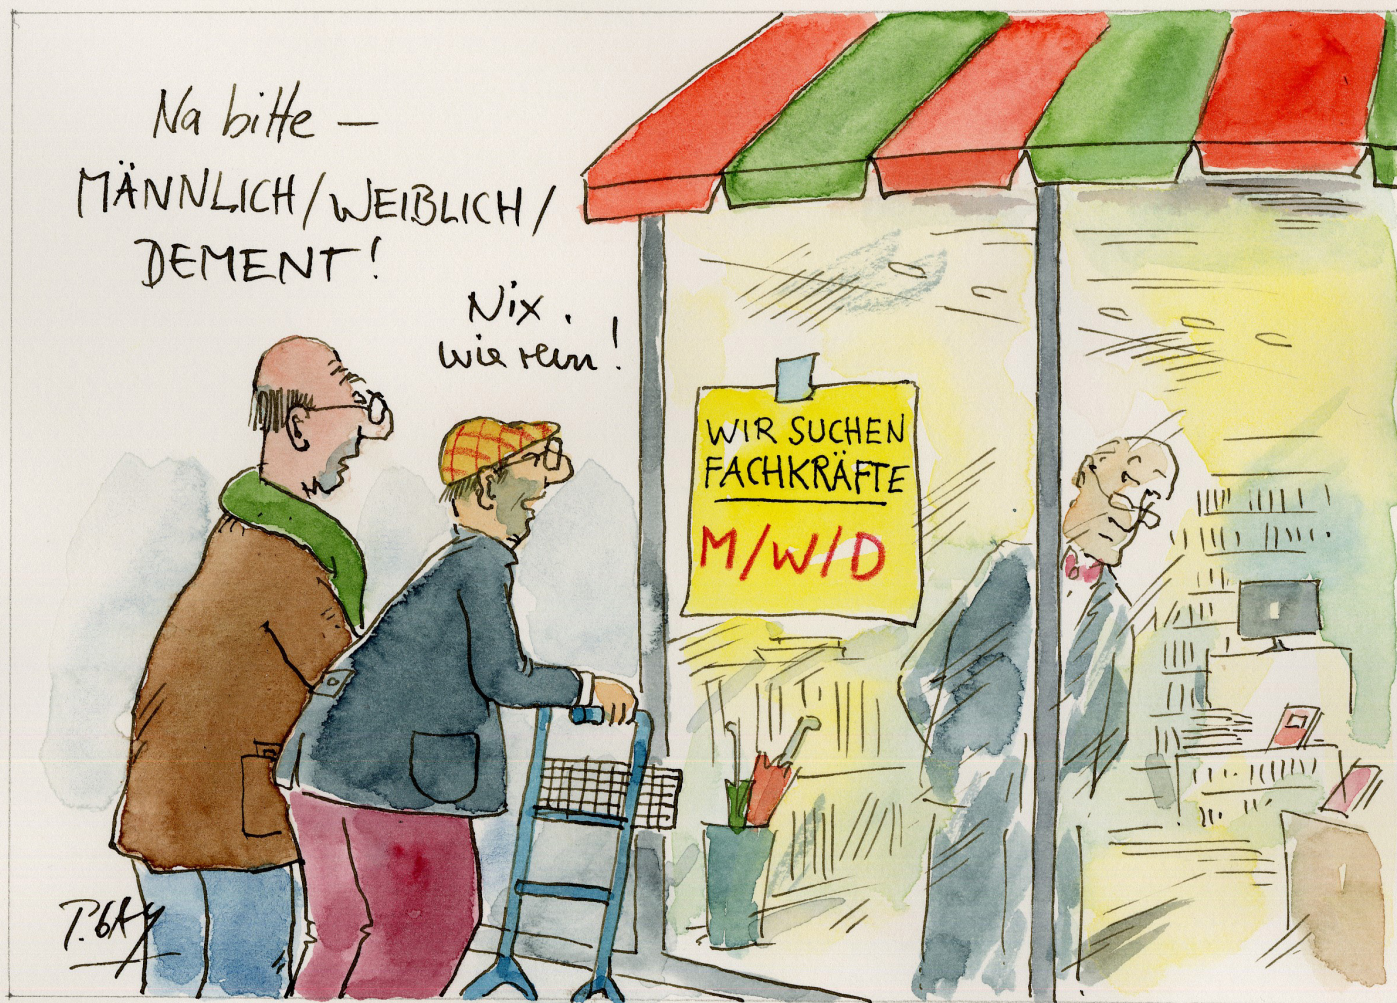 Na bitte –
MÄNNLICH/WEIBLICH/
DEMENT!
Nix.
wie rein!
WIR SUCHEN
FACHKRÄFTE
M/W/D
P. GAY